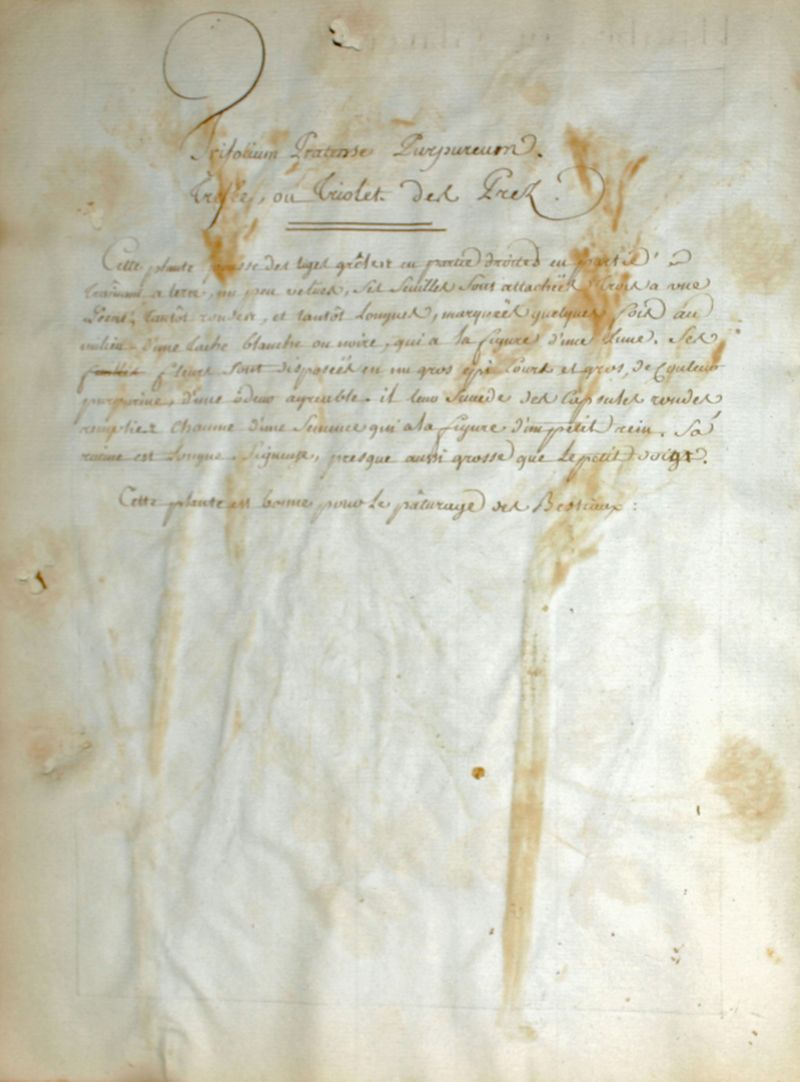 Trifolium Pratense Purpureum.
Trefle, ou Triolet des Prez.
Cette plante pousse des tiges grêles en partie droites en partie
trainant a terre, un peu velues, ses feuilles sont attachées trois a une
tantôt rondes, et tantôt longues, marqueés quelques fois au
milieu d'une tache blanche ou noire, qui a la figure d'une Lune. Ses
fleurs sont disposeés en un gros épi Court et gros, de Couleur
purpurine, d'une ôdeur agreable. il leur succede des Capsules rondes
remplies chacune d'une Semence qui a la figure d'un petit rein. Sa
racine est Longue, Ligneuse, presque aussi grosse que Le petit doigt.
Cette plante est bonne pour Le pâturage des Bestiaux :